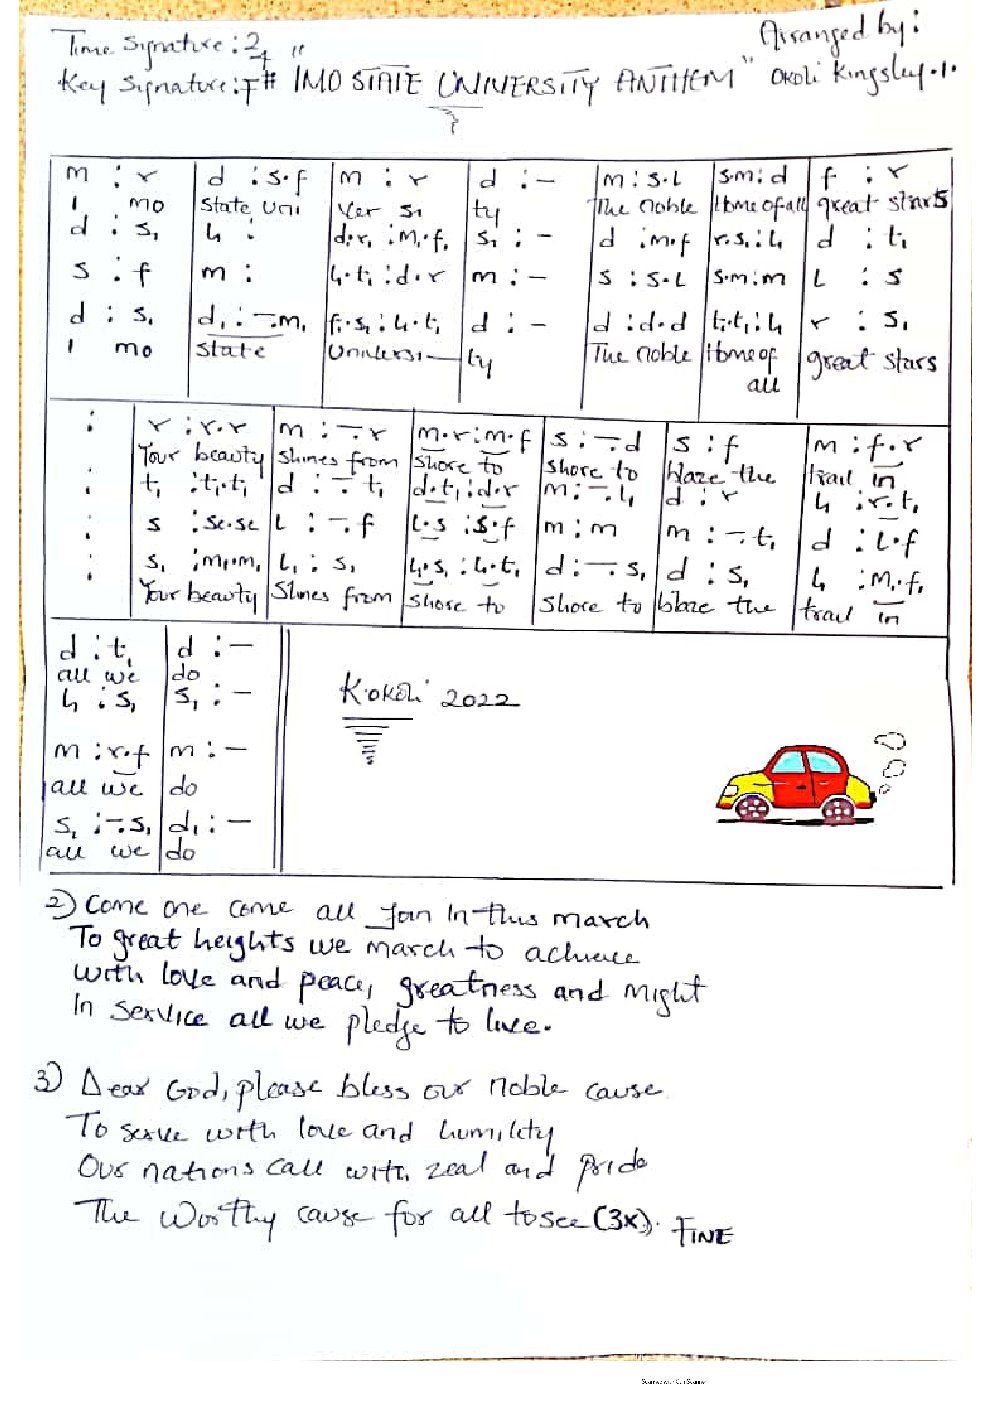 Time Signature: 2/4 "
Arranged by:
Key Signature: F# "IMO STATE UNIVERSITY ANTHEM" Okoli Kingsley .I.
m : r | d : s.f | m : r | d : - | m : s.l | s.m : d | f : r
I mo | State, Uni | Ver si | ty | The noble | Home of all | great stars
d : s, | l, : | d.r, : m,.f, | s, : - | d : m.f | r.s, : l, | d : t,
s : f | m : | l,.t, : d.r | m : - | s : s.l | s.m : m | l : s
d : s, | d, : -.m, | f,.s, : l,.t, | d : - | d : d.d | t,.t, : l, | r : s,
I mo | State | Universi- | ty | The noble | Home of all | great stars
: | r : r.r | m : -.r | m.r : m.f | s : -.d | s : f | m : f.r
Your beauty | shines from | shore to | shore to | blaze the | trail in
: | t, : t,.t, | d : -.t, | d.t, : d.r | m : -.l, | d : r | l, : r.t,
: | s : se.se | l : -.f | l.s : s.f | m : m | m : -.t, | d : l.f
: | s, : m,.m, | l, : s, | l,.s, : l,.t, | d : -.s, | d : s, | l, : m,.f,
Your beauty | Shines from | shore to | Shore to | blaze the | trail in
d : t, | d : -
all we | do
l, : s, | s, : -
m : r.f | m : -
all we | do
s, : -.s, | d, : -
all we | do
K.okoli 2022
2) Come one come all Join in this march
To great heights we march to achieve
With love and peace, greatness and might
In service all we pledge to live.
3) Dear God, please bless our noble cause
To serve with love and humility
Our nations call with zeal and pride
The worthy cause for all to see (3x). FINE
Scanned with CamScanner